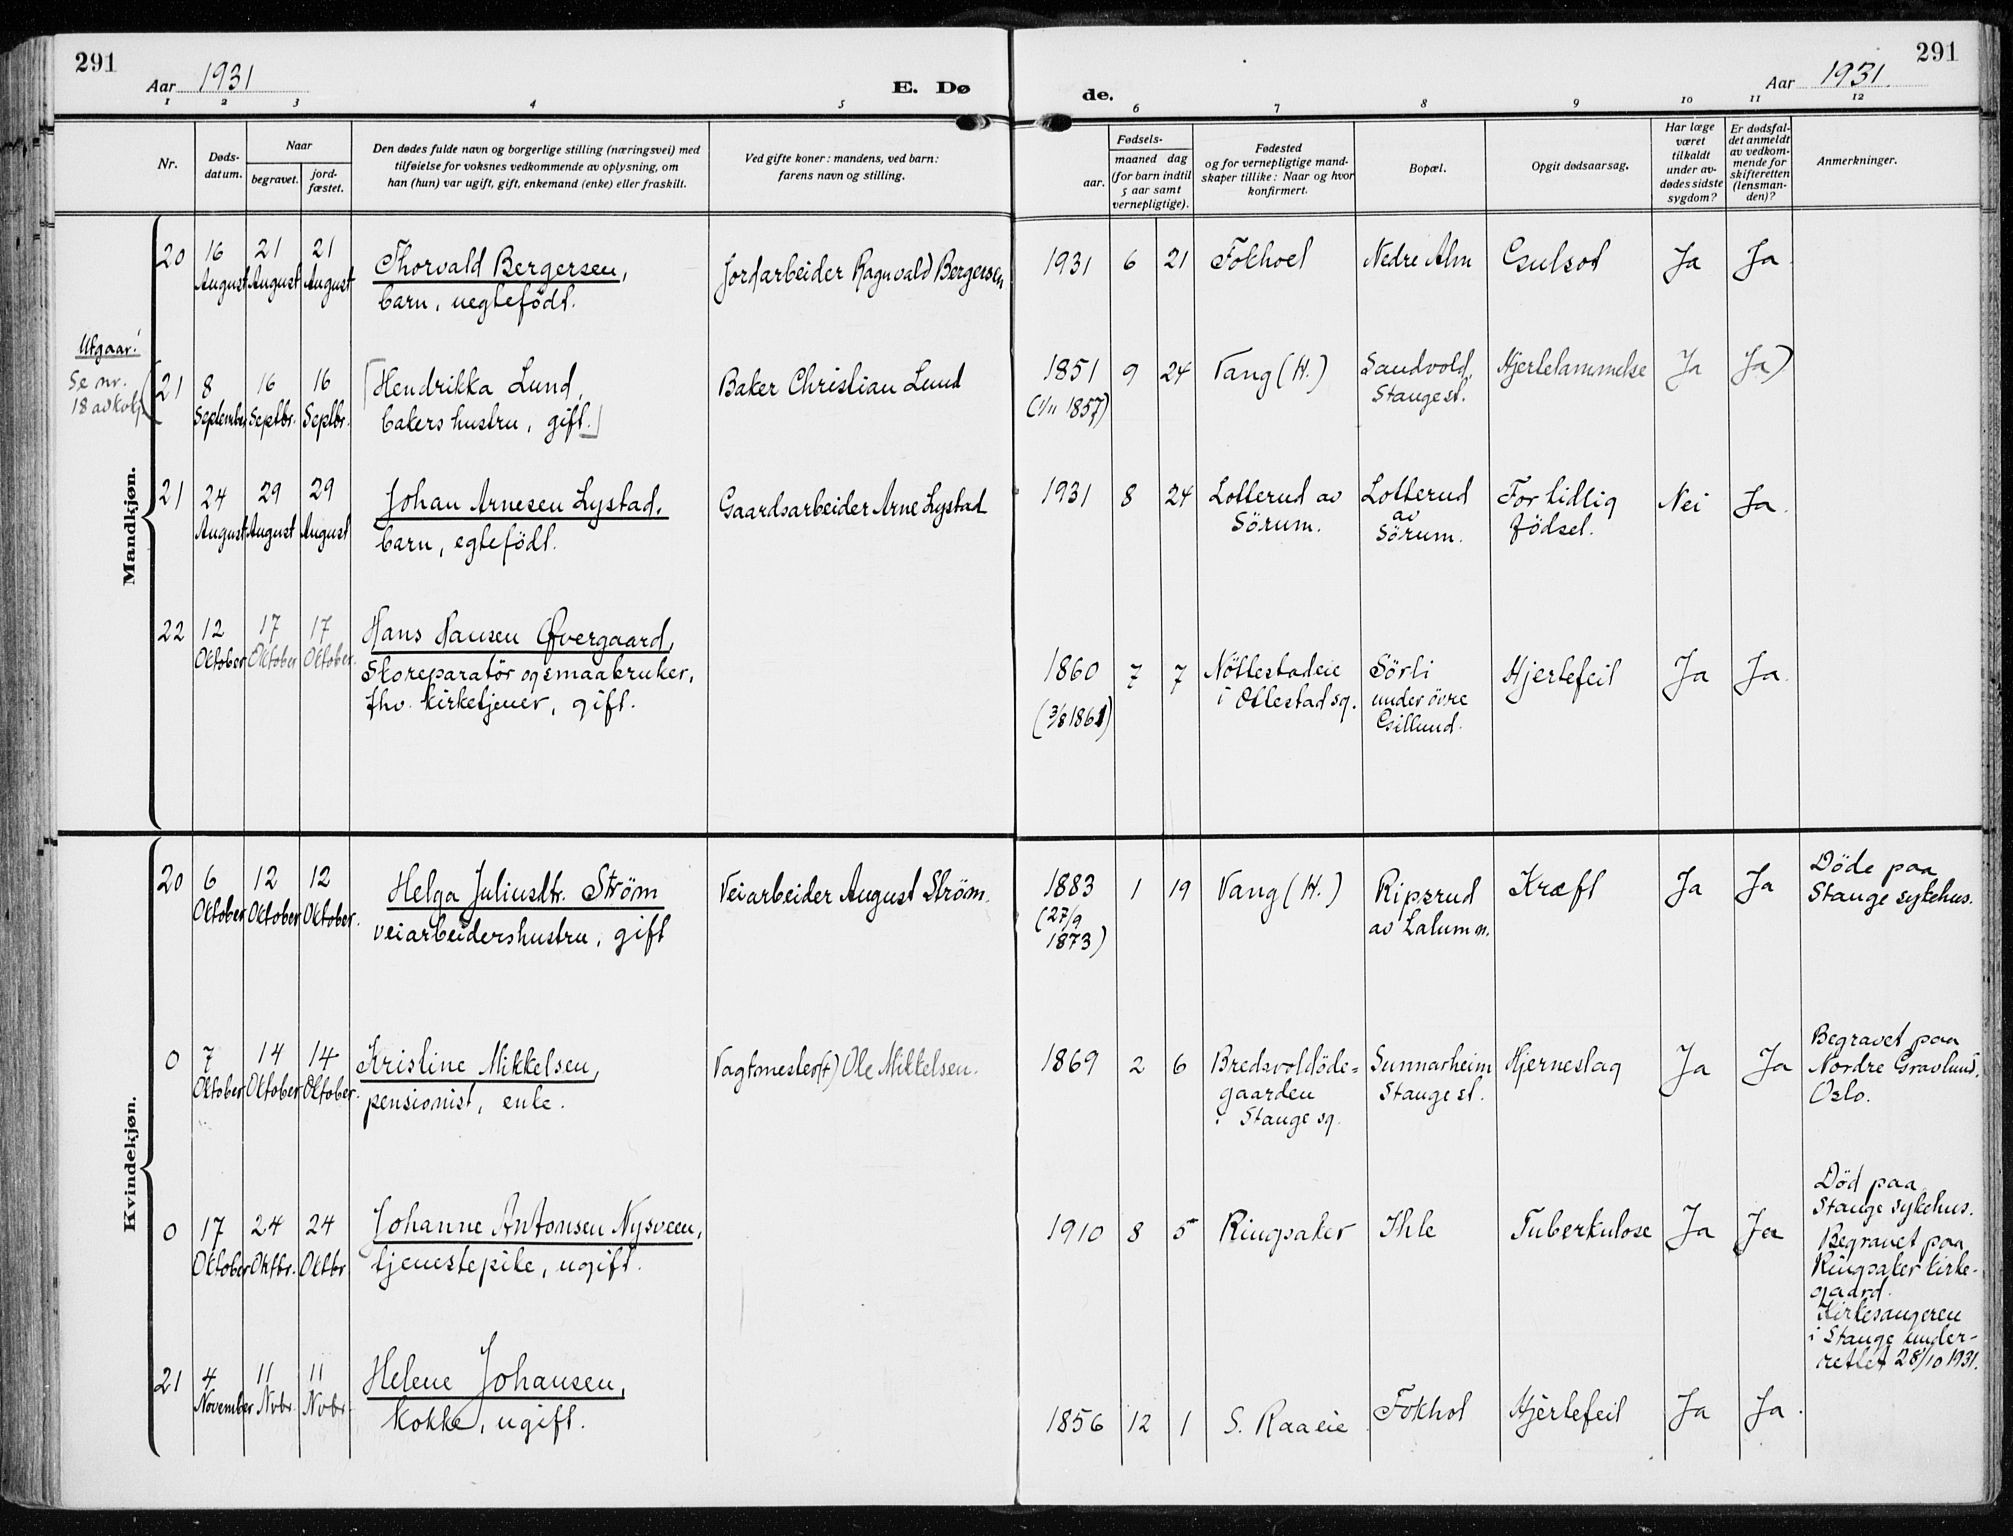 291
Aar 1931
E. Dø
de.
Aar 1931.
291
1 2 3 4 5 6 7 8 9 10 11 12
Nr.
Døds-
datum.
Naar
begravet.
jord-
fæstet.
Den dødes fulde navn og borgerlige stilling (næringsvei) med
tilføielse for voksnes vedkommende av oplysning, om
han (hun) var ugift, gift, enkemand (enke) eller fraskilt.
Ved gifte koner: mandens, ved barn:
farens navn og stilling.
Fødsels-
aar.
maaned dag
(for barn indtil
5 aar samt
vernepligtige).
Fødested
og for vernepligtige mand-
skaper tillike: Naar og hvor
konfirmert.
Bopæl.
Opgit dødsaarsag.
Har læge
været
tilkaldt
under av-
dødes sidste
sygdom?
Er dødsfal-
det anmeldt
av vedkom-
mende for
skifteretten
(lensman-
den)?
Anmerkninger.
Mandkjøn.
20 16 21 21 Thorvald Bergersen, Jordarbeider Ragnvald Bergersen 1931 6 21 Fokhoel Nedre Alm Gulsot Ja Ja.
August August August barn, uegtefödt.
Utgaar!
Se nr.
18 
(21 8 16 16 [Hendrikka Lund, Baker Christian Lund 1851 9 24 Vang (H.) Sandvold, Hjertelammelse Ja Ja)
September Septbr. Septbr. bakers hustru, gift.] (1/11 1857) Stange st.
21 24 29 29 Johan Arnesen Lystad, Gaardsarbeider Arne Lystad 1931 8 24 Lotterud av Lotterud For tidlig Nei Ja.
August August August barn, egtefödt. Sörum. av Sörum. födsel.
22 12 17 17 Hans Hansen Øvergaard,
Oktober Oktober Oktober. Skoreparatör og smaabruker, 1860 7 7 Nöttestadeie Sörli Hjertefeil Ja Ja.
fhv. kirketjener, gift. (3/8 1861) i Ottestad sg. under övre
Gillund.
Kvindekjøn.
20 6 12 12 Helga Juliusdtr. Ström Veiarbeider August Ström. 1883 1 19 Vang (H.) Ripsrud Kræft Ja Ja Döde paa
Oktober Oktober Oktober. veiarbeidershustru, gift (27/9 1873) av Lalum n. Stange sykehus.
0 7 14 14 Kristine Mikkelsen, Vagtmester(†) Ole Mikkelsen. 1869 2 6 Bredsvoldöde= Sunnarheim Hjerneslag Ja Ja Begravet paa
Oktober Oktober Oktober. pensionist, enke. gaarden Stange st. Nordre Gravlund,
i Stange sg. Oslo.
0 17 24 24 Johanne Antonsen Nysveen, 1910 8 5 Ringsaker Ihle Tuberkulose Ja Ja Död paa
Oktober Oktbr. Oktbr tjenestepike, ugift. Stange sykehus.
Begravet paa
Ringsaker kirke-
gaard.
Kirkesangeren
i Stange under-
rettet 28/10 1931.
21 4 11 11 Helene Johansen,
November Nvbr. Nvbr. kokke, ugift. 1856 12 1 S. Raaeie Fokhol Hjertefeil Ja Ja.